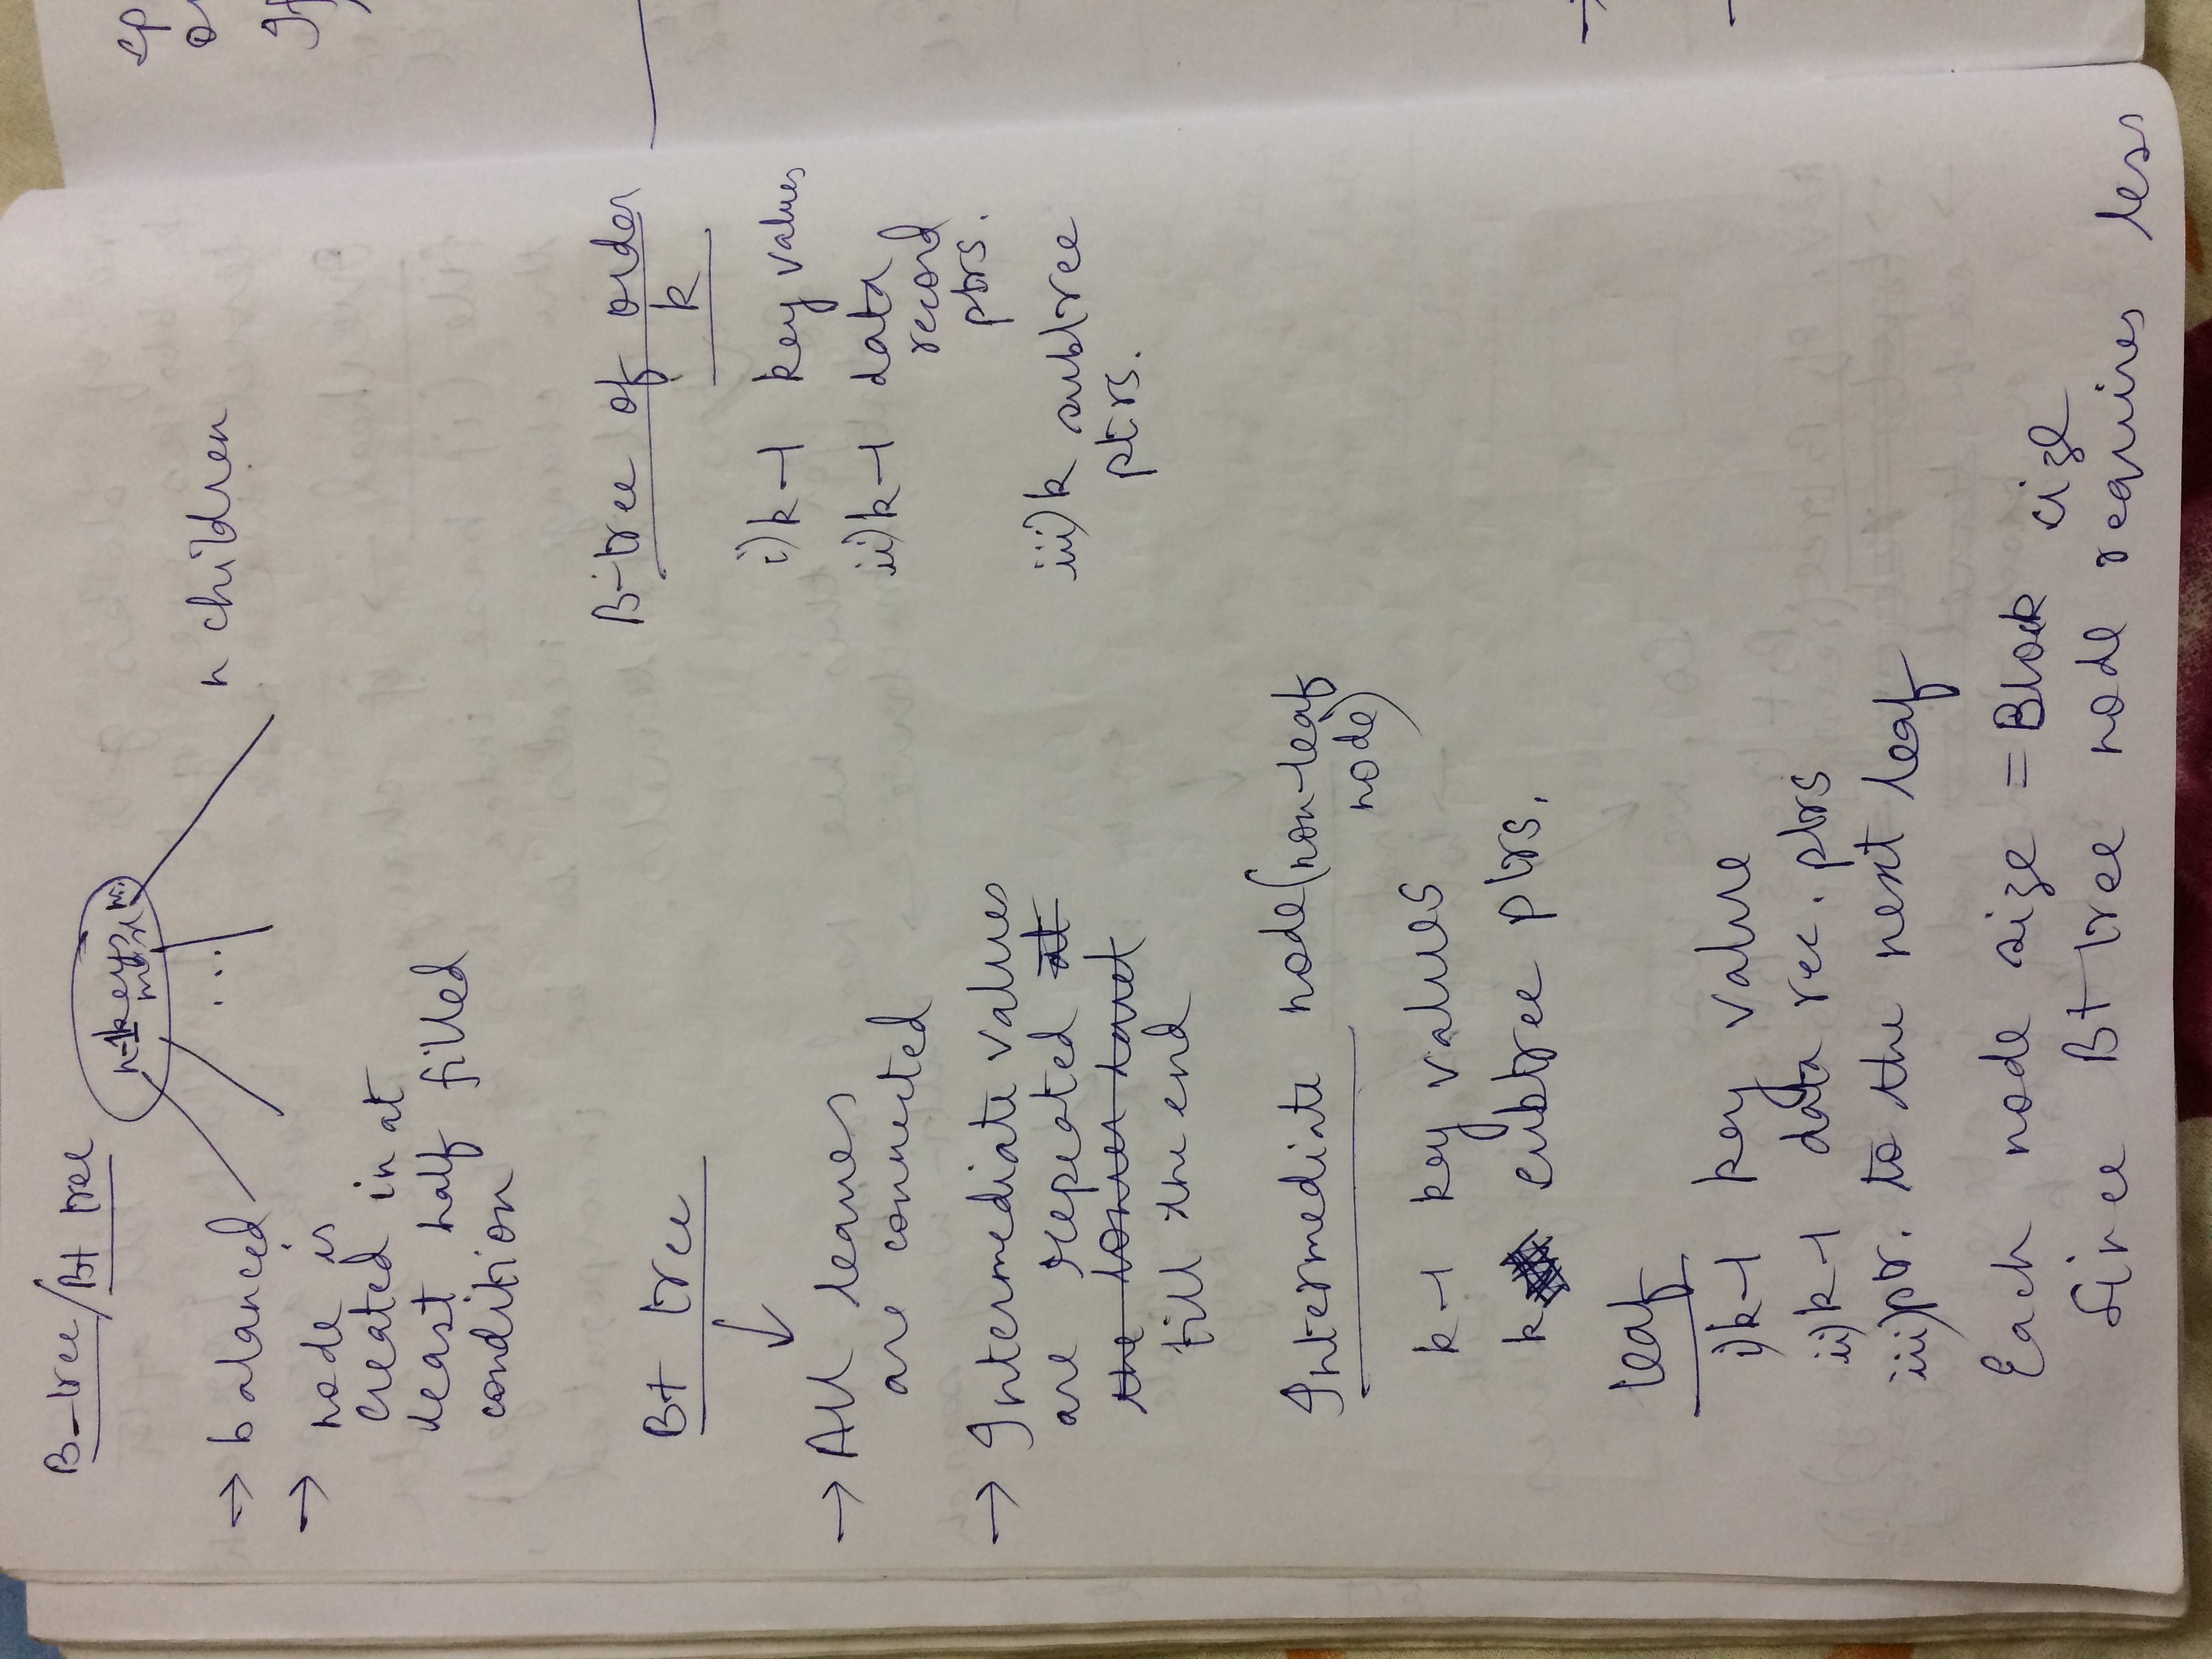 B-tree/B+ tree
n-1 keys
max
→ balanced
...
n children
→ node is
created in at
least half filled
condition
B+ tree
→ All leaves
are connected
→ Intermediate values
are repeated at
the lower level
till the end
B-tree of order
k
i) k-1 key values
ii) k-1 data
record
ptrs.
iii) k subtree
ptrs.
Intermediate node (non-leaf
node)
k-1 key values
k subtree ptrs.
leaf
i) k-1 key value
ii) k-1 data rec. ptrs
iii) ptr. to the next leaf
Each node size = Block size
Since B+ tree node requires less
sp
If